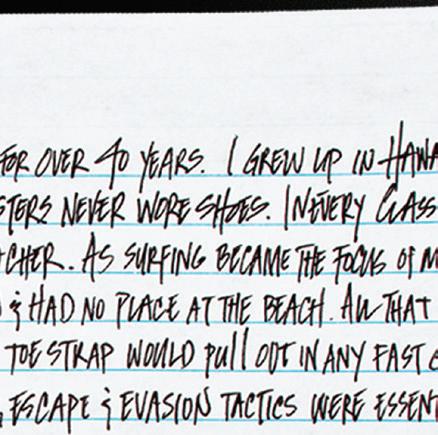 FOR OVER 40 YEARS. I GREW UP IN HAWA
STERS NEVER WORE SHOES. IN EVERY CLASS
ACHER. AS SURFING BECAME THE FOCUS OF M
& HAD NO PLACE AT THE BEACH. ALL THAT
TOE STRAP WOULD PULL OUT IN ANY FAST
ESCAPE & EVASION TACTICS WERE ESSENT